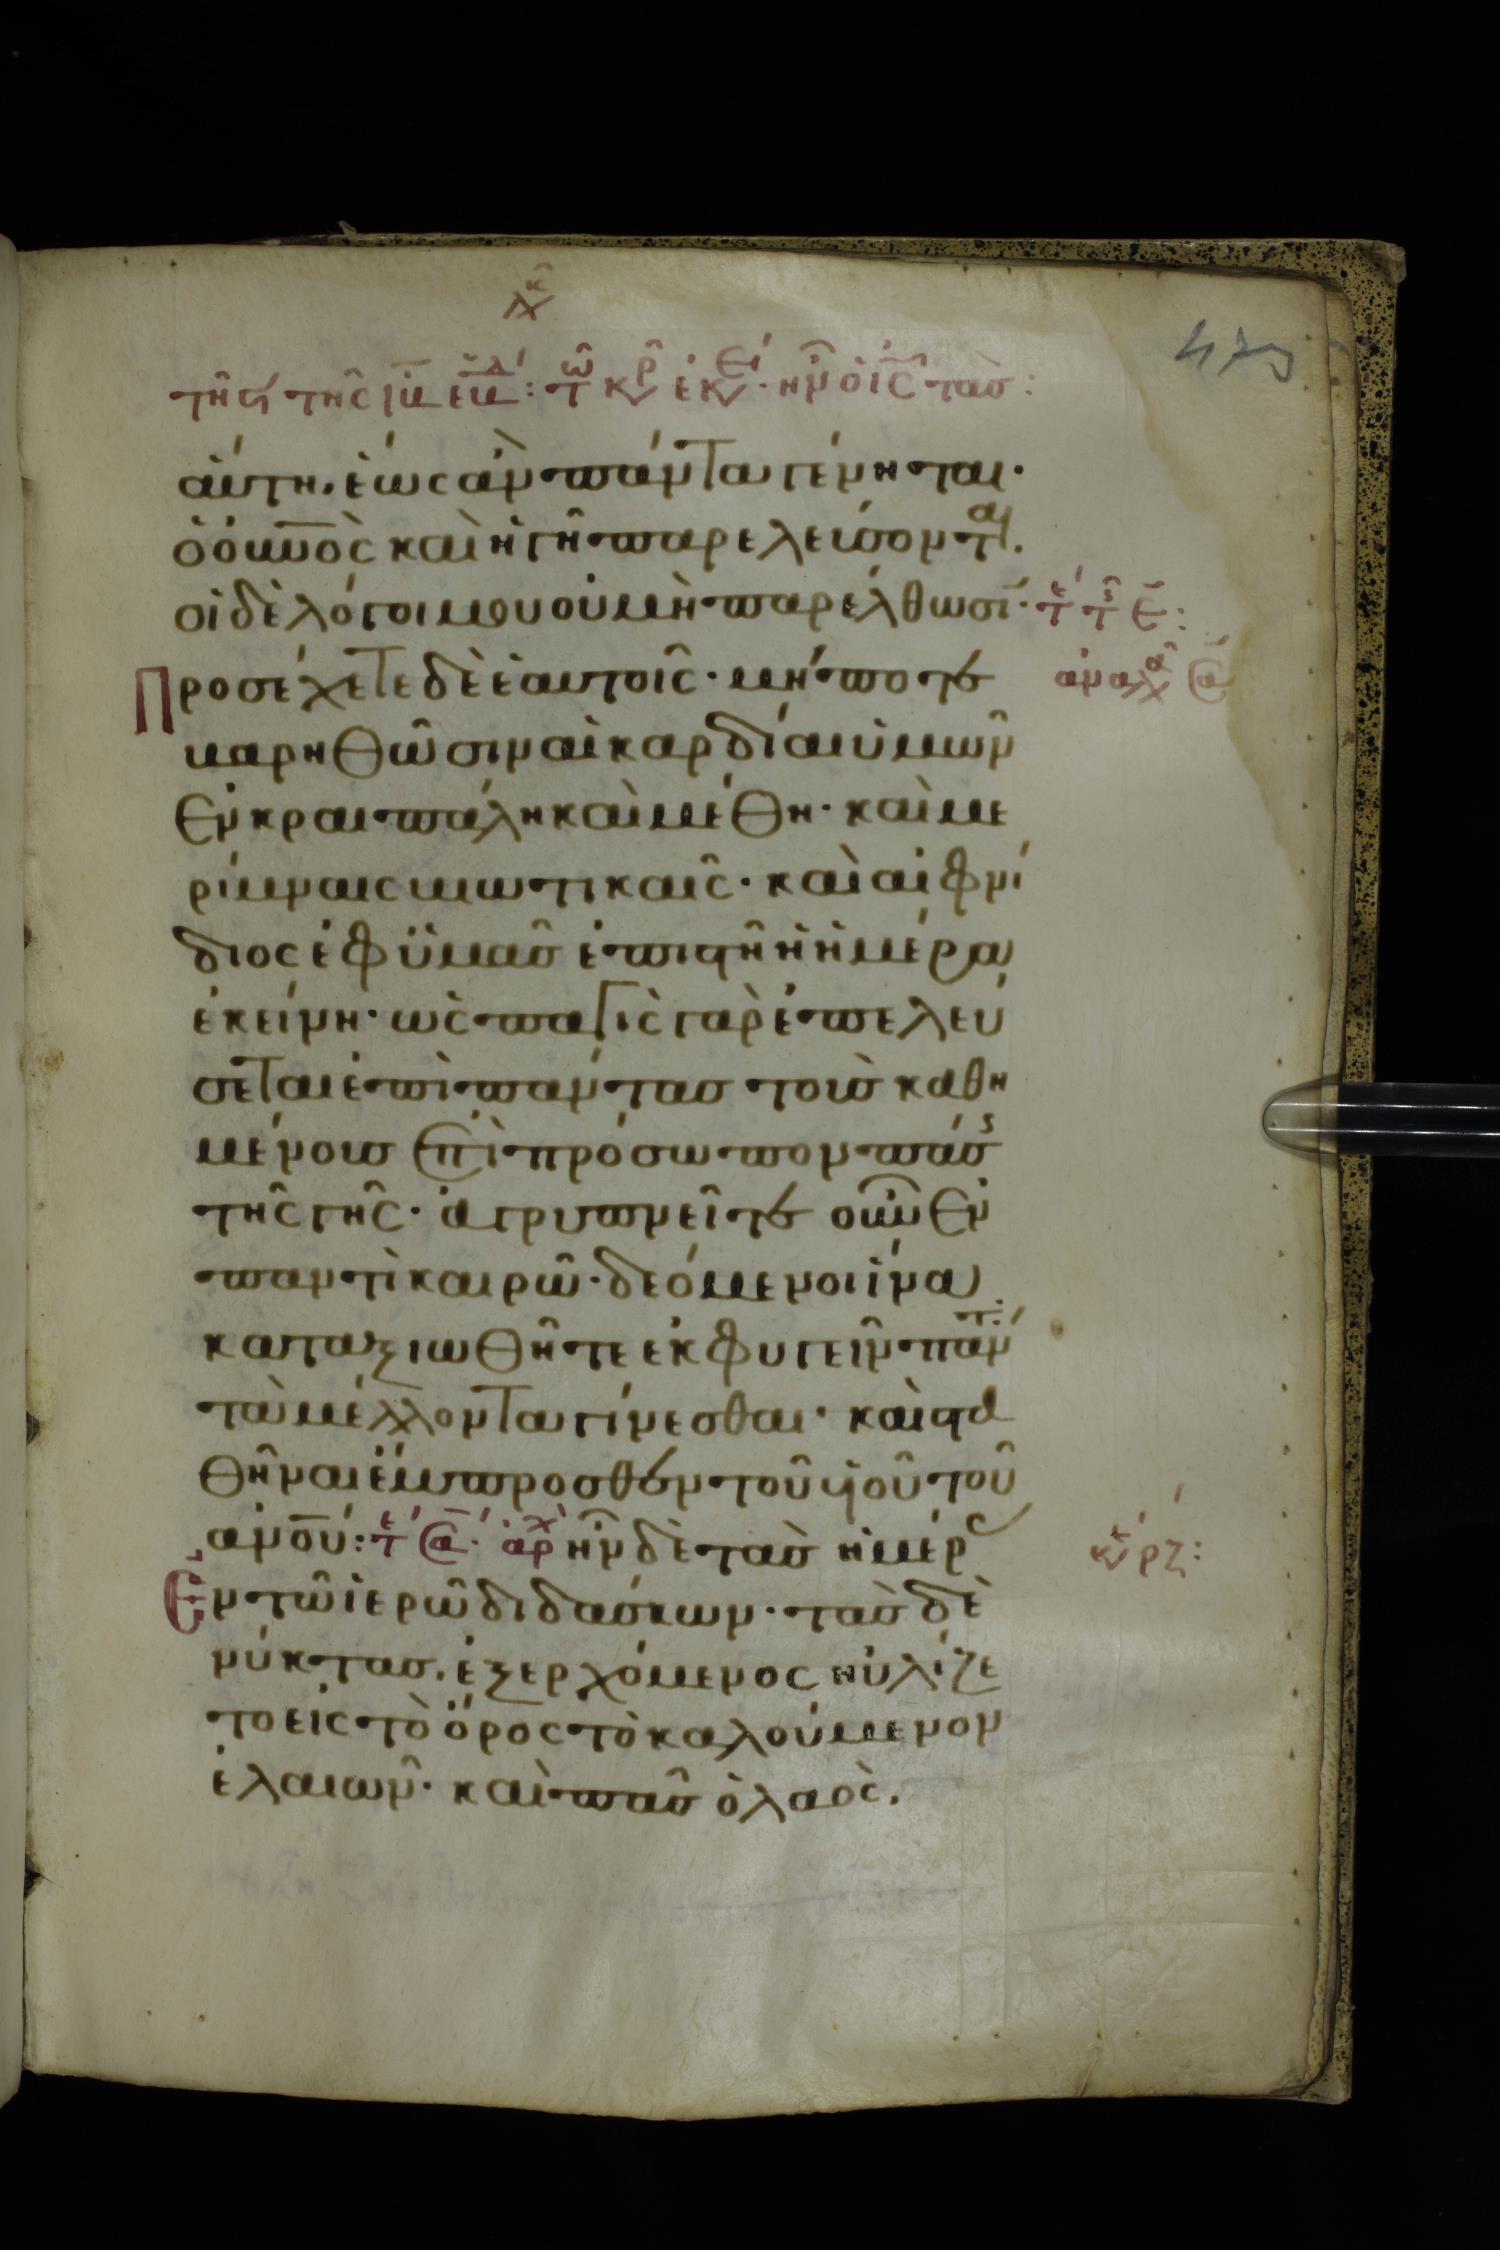 αύτη. ἕως ἂν πάντα γένηται.
ὁ οὐνὸς καὶ ἡ γῆ παρελεύσονται.
οἱ δὲ λόγοι μου οὐ μὴ παρέλθωσι·
Προσέχετε δὲ ἑαυτοῖς· μήποτε
βαρηθῶσιν αἱ καρδίαι ὑμῶν
ἐν κραιπάλη καὶ μέθη· καὶ με
ρίμναις βιωτικαῖς· καὶ αἰφνί
διος ἐφ ὑμᾶς ἐπιστῆ ἡ ἡμέρα
ἐκείνη· ὡς παγὶς γὰρ ἐπελεύ
σεται ἐπὶ πάντας τοὺς καθη
μένους ἐπὶ πρόσωπον πάσ
τῆς γῆς· ἀγρυπνεῖτε οὖν ἐν
παντὶ καιρῶ· δεόμενοι ἵνα
καταξιωθῆτε ἐκφυγεῖν πάντ
τὰ μέλλοντα γίνεσθαι· καὶ στα
θῆναι ἔμπροσθεν τοῦ υἱοῦ τοῦ
ἀνου: τε α· ἀρχ ἦν δὲ τὰς ἡμέρ
Ἐν τῶ ἱερῶ διδάσκων· τὰς δὲ
νύκτας. ἐξερχόμενος ηὐλίζε
το εἰς τὸ ὄρος τὸ καλούμενον
ἐλαιῶν· καὶ πᾶς ὁ λαὸς.